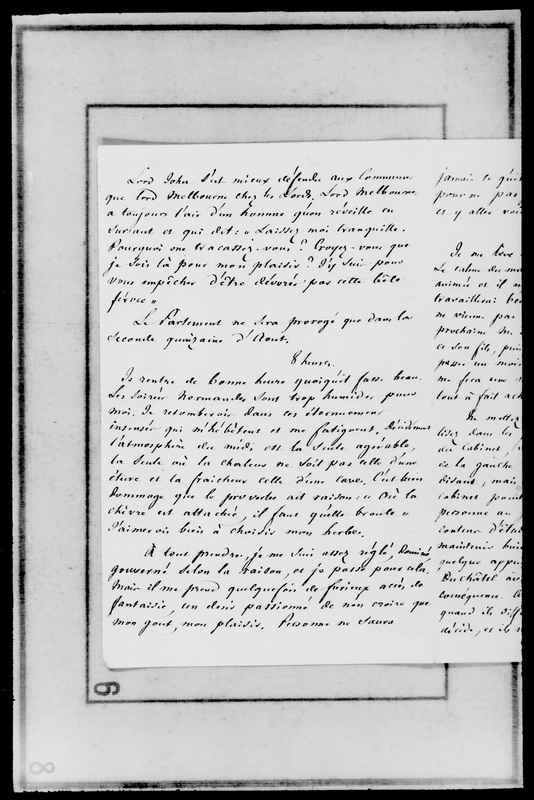 Lord John s'est mieux défendu aux Communes
que lord Melbourne chez les Lords. Lord Melbourne
a toujours l'air d'un homme qu'on réveille en
sursaut et qui dit: « Laissez moi tranquille.
Pourquoi me tracassez-vous? Croyez-vous que
je sois là pour mon plaisir? J'y suis pour
vous empêcher d'être dévorés par cette bête
féroce »
Le Parlement ne sera prorogé que dans la
seconde quinzaine d'Aout.
8 heures.
Je rentre de bonne heure quoiqu'il fasse beau.
Les soirées Normandes sont trop humides pour
moi. Je retomberois dans ces éternuements
insensés qui m'hébètent et me fatiguent. Décidément
l'atmosphère du midi est la seule agréable,
la seule où la chaleur ne soit pas celle d'une
étuve et la fraicheur celle d'une cave. C'est bien
dommage que le proverbe ait raison: « Où la
chèvre est attachée, il faut qu'elle broute »
J'aimerois bien à choisir mon herbe.
À tout prendre, je me suis assez réglé, dominé,
gouverné selon la raison, et je passe pour cela.
Mais il me prend quelquefois de furieux accès de
fantaisie, un désir passionné de n'en croire que
mon gout, mon plaisir. Personne ne saura
jamais ce qu'il
pour ne pas
et y aller voir
Je me lève
Le calme du
animée et il
travaillerai
ne vienne pas
prochaine M.
et son fils,
passer un mois
me fera une
tout à fait
Un mettez
lisez dans les
du Cabinet,
de la gauche
disant, mais
Cabinet point
personne au
conteur
maintenir
quelque
Duchâtel
conséquence.
quand ils
décide, et ils
9
8